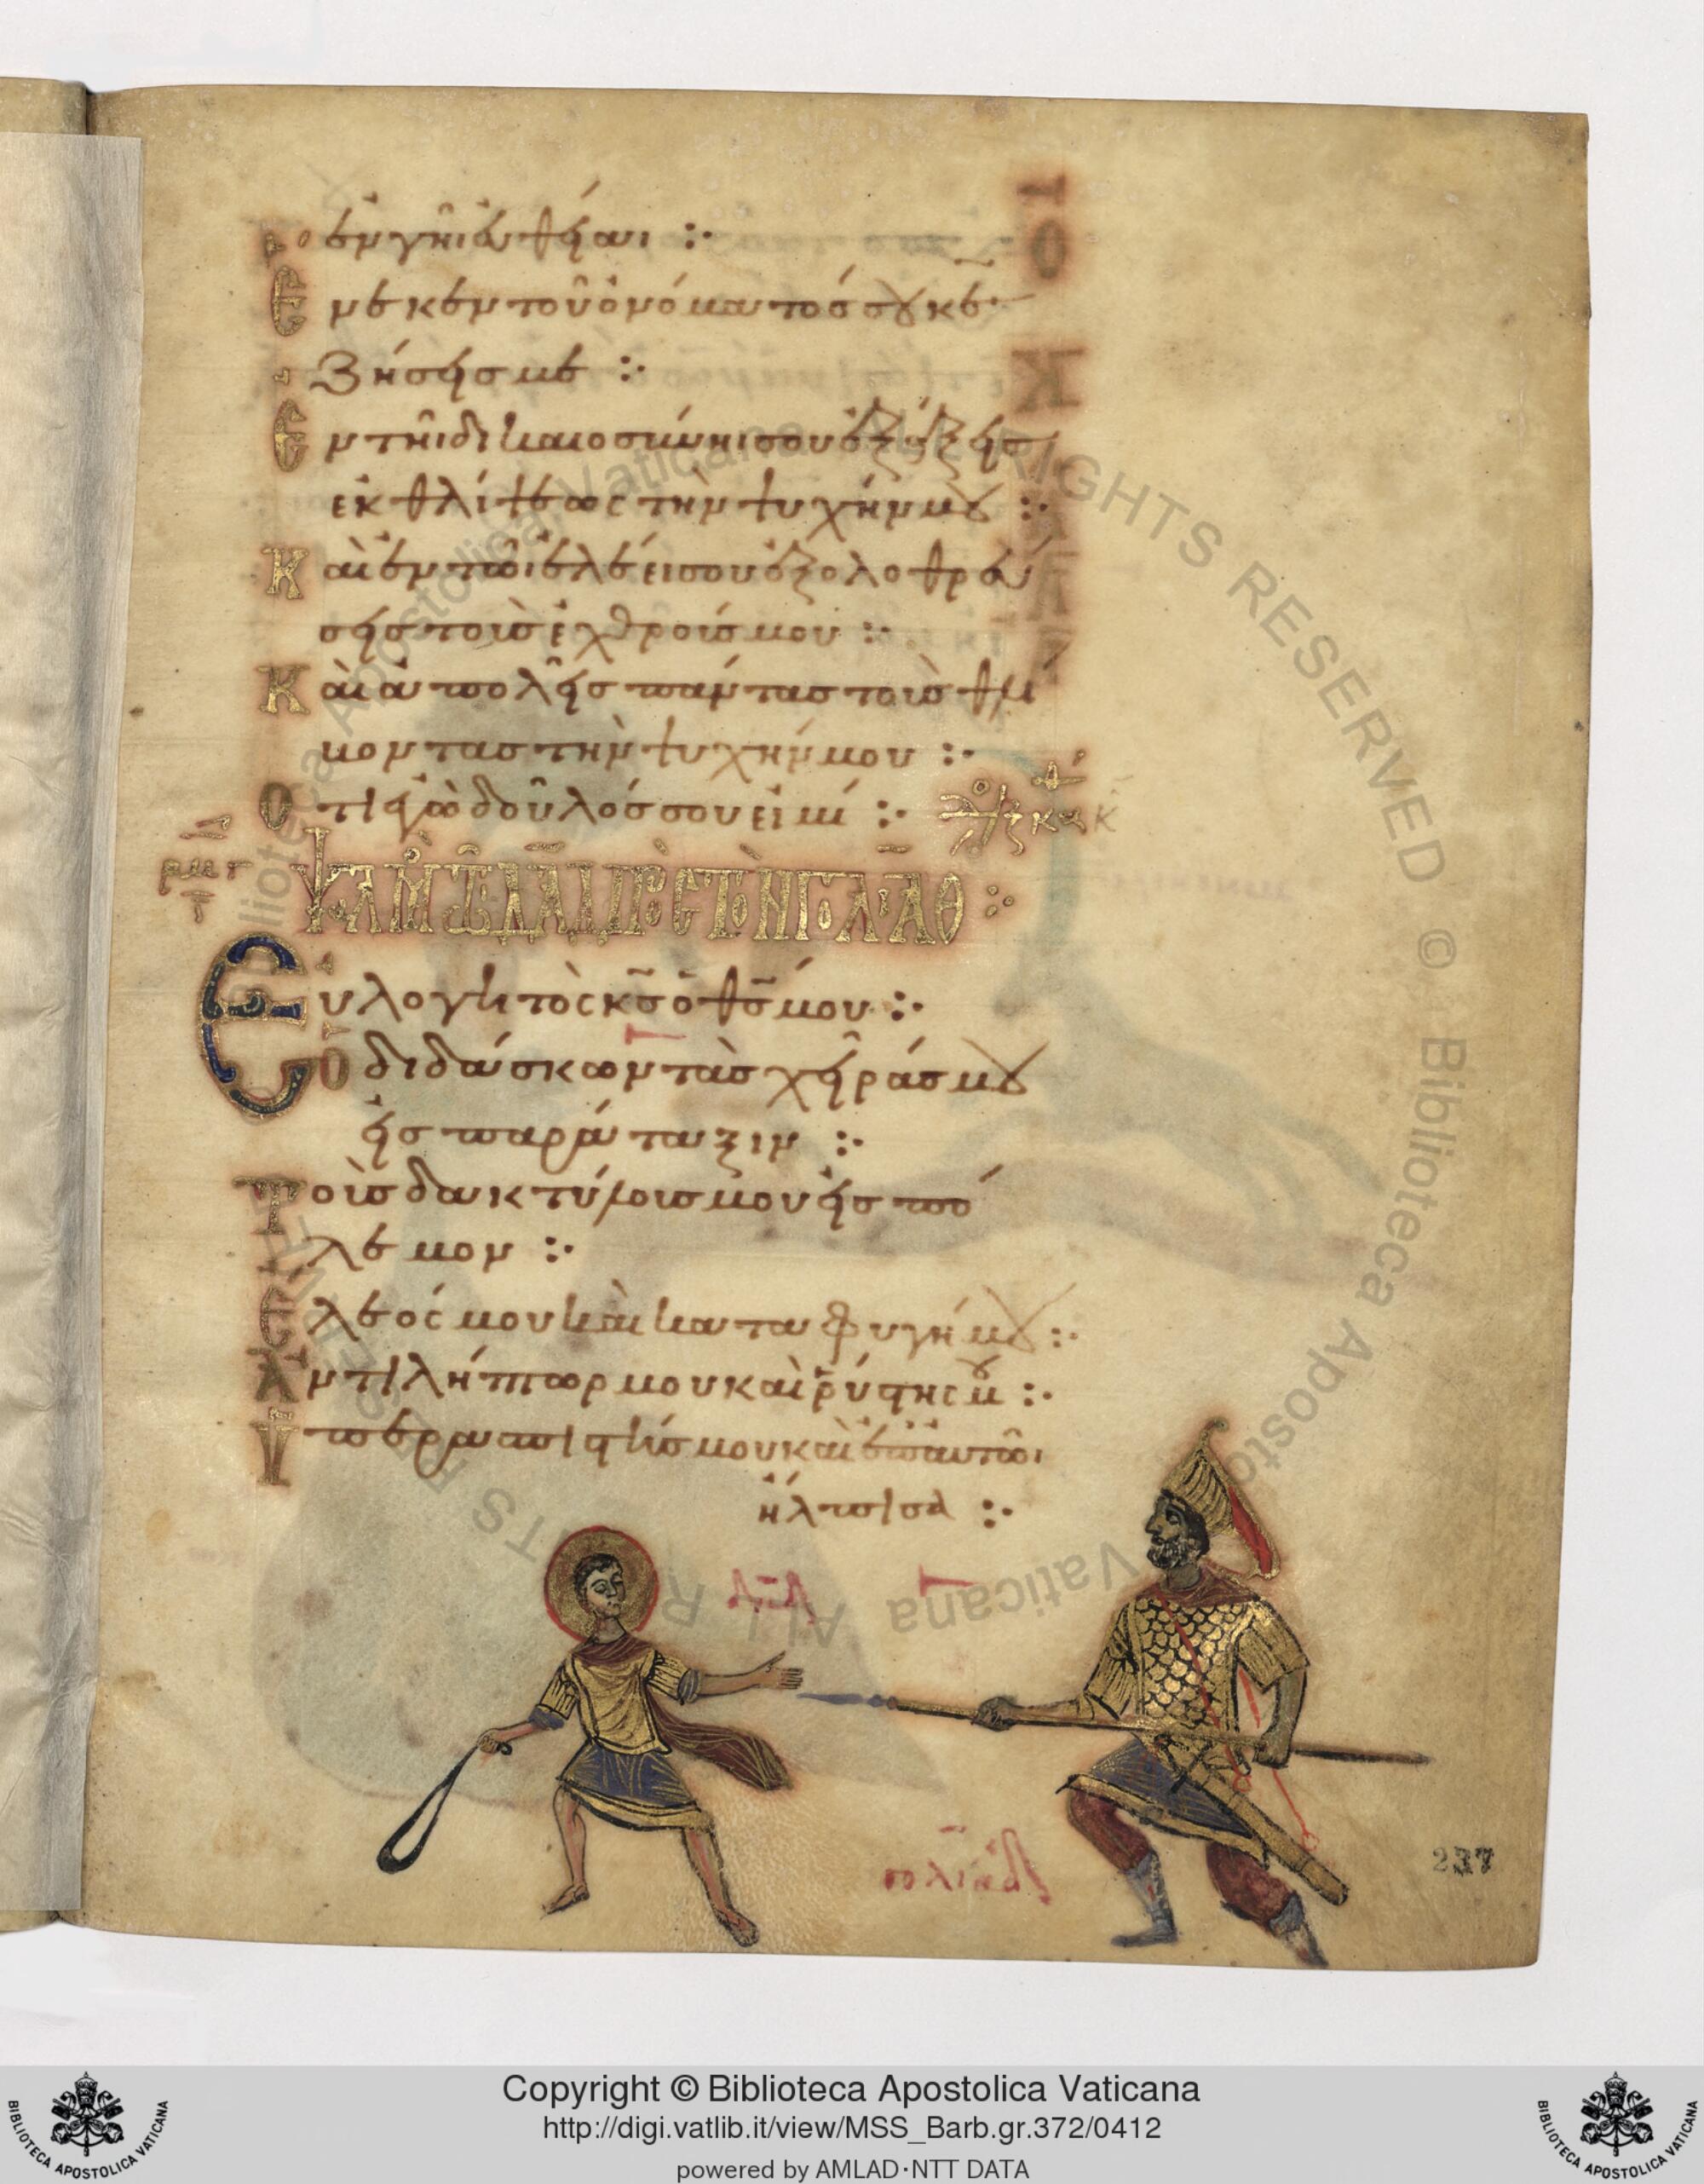 ἐν γῆι εὐθείαι :·
Ἕνεκεν τοῦ ὀνόματόσ σου κε
ζήσεισ με :·
Ἐν τῆι δικαιοσύνηι σου ἐξάξεισ
ἐκ θλίψεως τὴν ψυχήν μου :·
Καὶ ἐν τῶι ἐλέει σου ἐξολοθρεύ
σεισ τοὺσ ἐχθρούσ μου :·
Καὶ ἀπολεῖσ πάντασ τοὺσ θλι
βοντασ τὴν ψυχήν μου :·
Ὅτι ἐγὼ δοῦλόσ σου εἰμί :·
ρμγ
Ψαλμ τῶ δαδ πρὸς τὸν γολιὰθ :·
Εὐλογητὸς κσ ὁ θσ μου :·
Ὁ διδάσκων τὰσ χεῖράσ μου
εἰσ παράταξιν :·
Τοὺσ δακτύλουσ μου εἰσ πό
λεμον :·
Ἔλεός μου καὶ καταφυγή μου :·
Ἀντιλήπτωρ μου καὶ ῥύστης μου :·
Ὑπερασπιστήσ μου καὶ ἐπ αὐτῶι
ἤλπισα :·
δαδ
γολιαδ
237
Biblioteca Apostolica Vaticana ALL RIGHTS RESERVED © Biblioteca Apostolica Vaticana ALL RIGHTS RESERVED
BIBLIOTECA APOSTOLICA VATICANA
Copyright © Biblioteca Apostolica Vaticana
http://digi.vatlib.it/view/MSS_Barb.gr.372/0412
powered by AMLAD·NTT DATA
BIBLIOTECA APOSTOLICA VATICANA